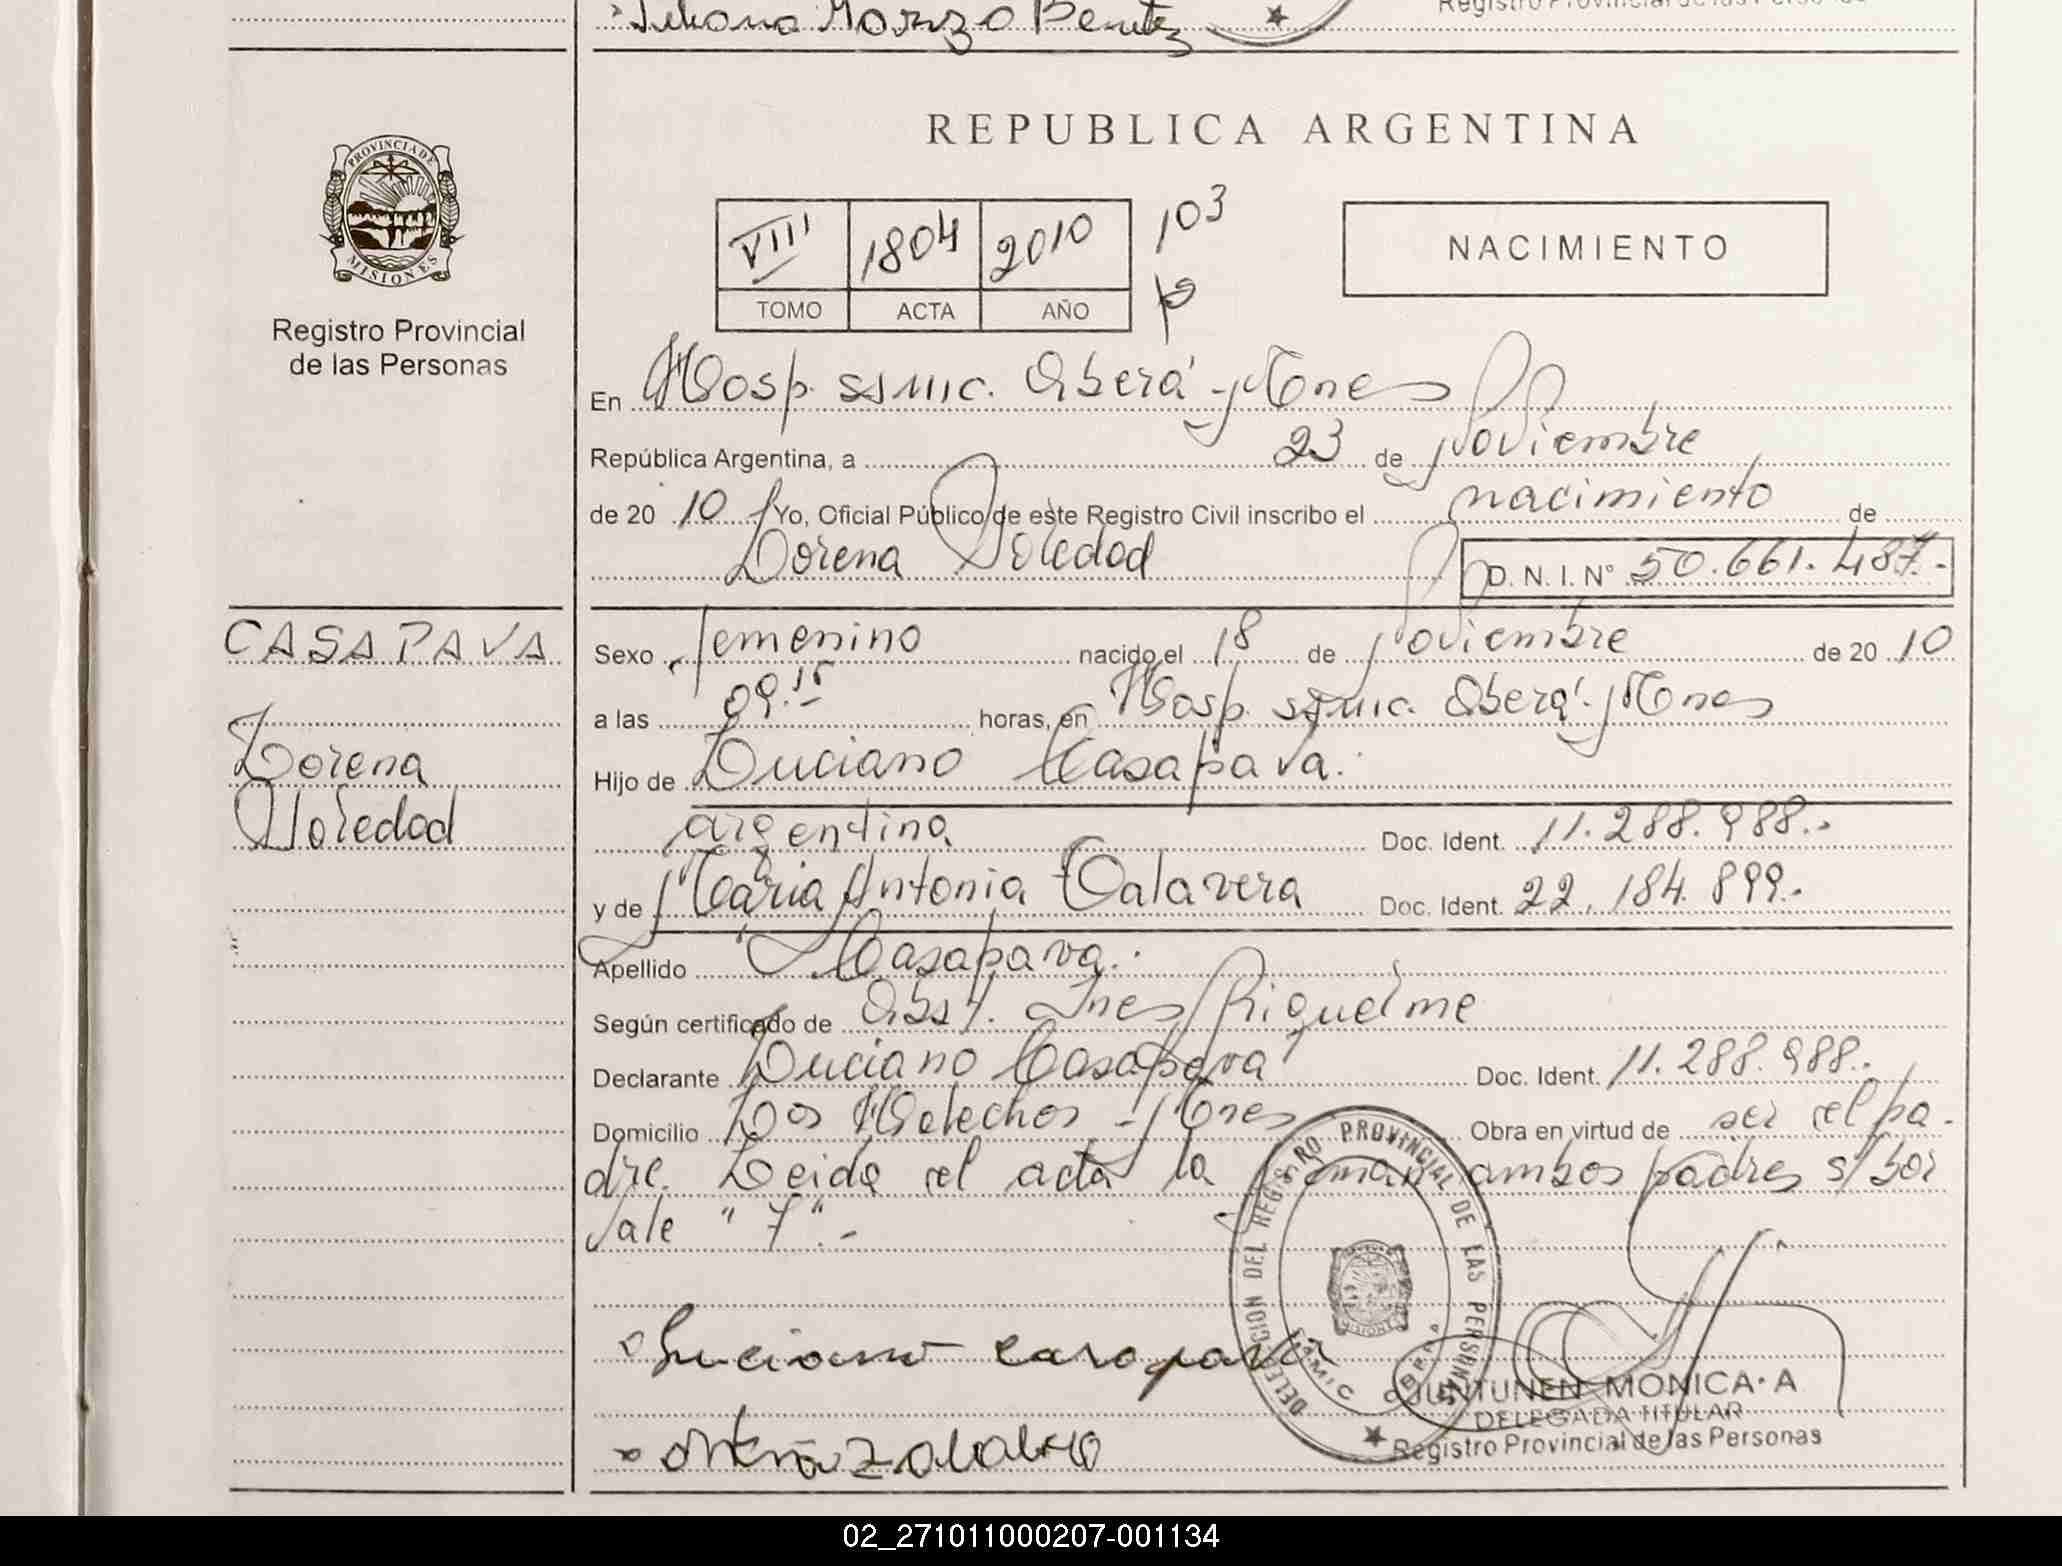 Liliana Marizza Benitez
Registro Provincial de las Personas
PROVINCIA DE
MISIONES
Registro Provincial
de las Personas
REPUBLICA ARGENTINA
VIII 1804 2010 103
TOMO ACTA AÑO
NACIMIENTO
En Hosp. SSMIC. Oberá - Mnes
República Argentina, a 23 de Noviembre
de 20 10 Yo, Oficial Público de este Registro Civil inscribo el nacimiento de
Lorena Soledad D. N. I. N° 50.661.487.-
CASAPAVA
Lorena
Soledad
Sexo femenino nacido el 18 de Noviembre de 20 10
a las 09.15 horas, en Hosp. SSMIC. Oberá - Mnes
Hijo de Luciano Casapava.
argentina Doc. Ident. 11.288.988.-
y de Maria Antonia Talavera Doc. Ident. 22.184.899.-
Apellido "Casapava.
Según certificado de Obst. Ines Riquelme
Declarante Luciano Casapava Doc. Ident. 11.288.988.-
Domicilio Los Helechos - Mnes Obra en virtud de ser el pa-
dre. Leida el acta la firman ambos padres s/bor
Vale "7".-
Luciano Casapava
DELEGACION DEL REGISTRO PROVINCIAL DE LAS PERSONAS
MISIONES
SAMIC OBERA
JUNTUNEN MONICA A
DELEGADA TITULAR
Registro Provincial de las Personas
02_271011000207-001134